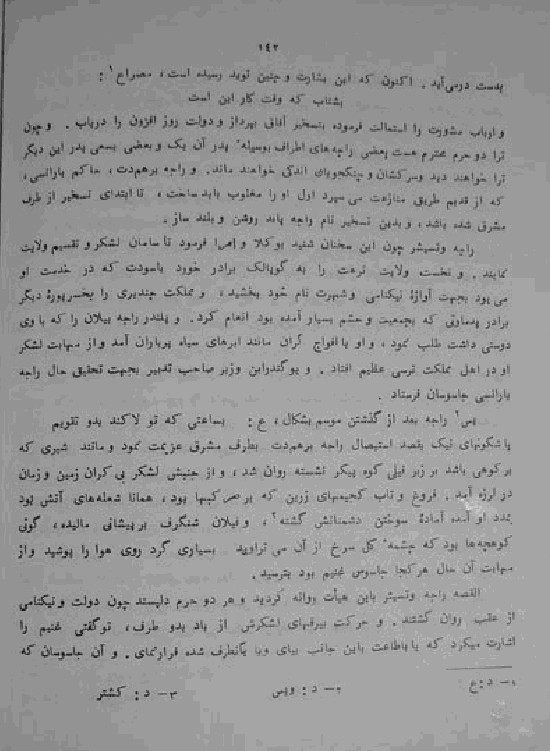 ١٤٢
بدست درمی‌آید. اکنون که این بشارت و چنین نوید رسیده است، مصراع١:
بشتاب که وقت کار این است
و ارباب مشورت را استمالت فرموده بتسخیر آفاق بپرداز و دولت روز افزون را دریاب. و چون
ترا دو حرم محترم هست بعضی راجه‌های اطراف بوسیلهٔ پدر آن یک و بعضی بسعی پدر این دیگر
ترا خواهند دید و سرکشان و جنگجویان اندکی خواهند ماند. و راجه برهمدت، حاکم بارانسی،
که از قدیم طریق منازعت می سپرد اول او را مغلوب باید ساخت، تا ابتدای تسخیر از طرف
مشرق شده باشد، و بدین تسخیر نام راجه پاند روشن و بلند ساز.
راجه وتسیشر چون این سخنان شنید بوکلا و امرا فرمود تا سامان لشکر و تقسیم ولایت
نمایند. و نخست ولایت ترهت را به گوپالک برادر خورد یاسودت که در خدمت او
می بود بجهت آوازهٔ نیکنامی و شهرت نام خود ببخشید، و مملکت چندیری را بخسرپورهٔ دیگر
برادر پدماوتی که بجمعیت و حشم بسیار آمده بود انعام کرد. و پلندر راجه بیلان را که با وی
دوستی داشت طلب نمود، و او با افواج گران مانند ابرهای سیاه پرباران آمد و از مهابت لشکر
او در اهل مملکت ترسی عظیم افتاد. و یوگندراین وزیر صاحب تدبیر بجهت تحقیق حال راجه
بارانسی جاسوسان فرستاد.
پس٢ راجه بعد از گذشتن موسم بشکال، ع: بساعتی که تولا کند بدو تقویم
با شگونهای نیک بقصد استیصال راجه برهمدت بطرف مشرق عزیمت نمود و مانند شیری که
بر کوهی باشد بر زبر فیلی کوه پیکر نشسته روان شد، و از جنبش لشکر بی کران زمین و زمان
در لرزه آمد. فروغ و تاب کجیمهای زرین که بر مرکبها بود، همانا شعله‌های آتش بود
بمدد او آمده آمادهٔ سوختن دشمنانش گشته٣، و فیلان شنگرف بر پیشانی مالیده، گوئی
کوهچه‌ها بود که چشمهٔ گل سرخ از آن می تراوید. بسیاری گرد روی هوا را پوشید و از
مهابت آن حال هر کجا جاسوس غنیم بود بترسید.
القصه راجه وتسیشر باین هیأت روانه گردید و هر دو حرم دلپسند چون دولت و نیکنامی
از عقب روان گشتند. و حرکت بیرقهای لشکرش از باد بدو طرف، تو گفتی غنیم را
اشارت میکرد که یا باطاعت باین جانب بیای و یا بآنطرف شده فرار نمای. و آن جاسوسان که
١- د: ع
٢- د: وپس
٣- د: کشتر